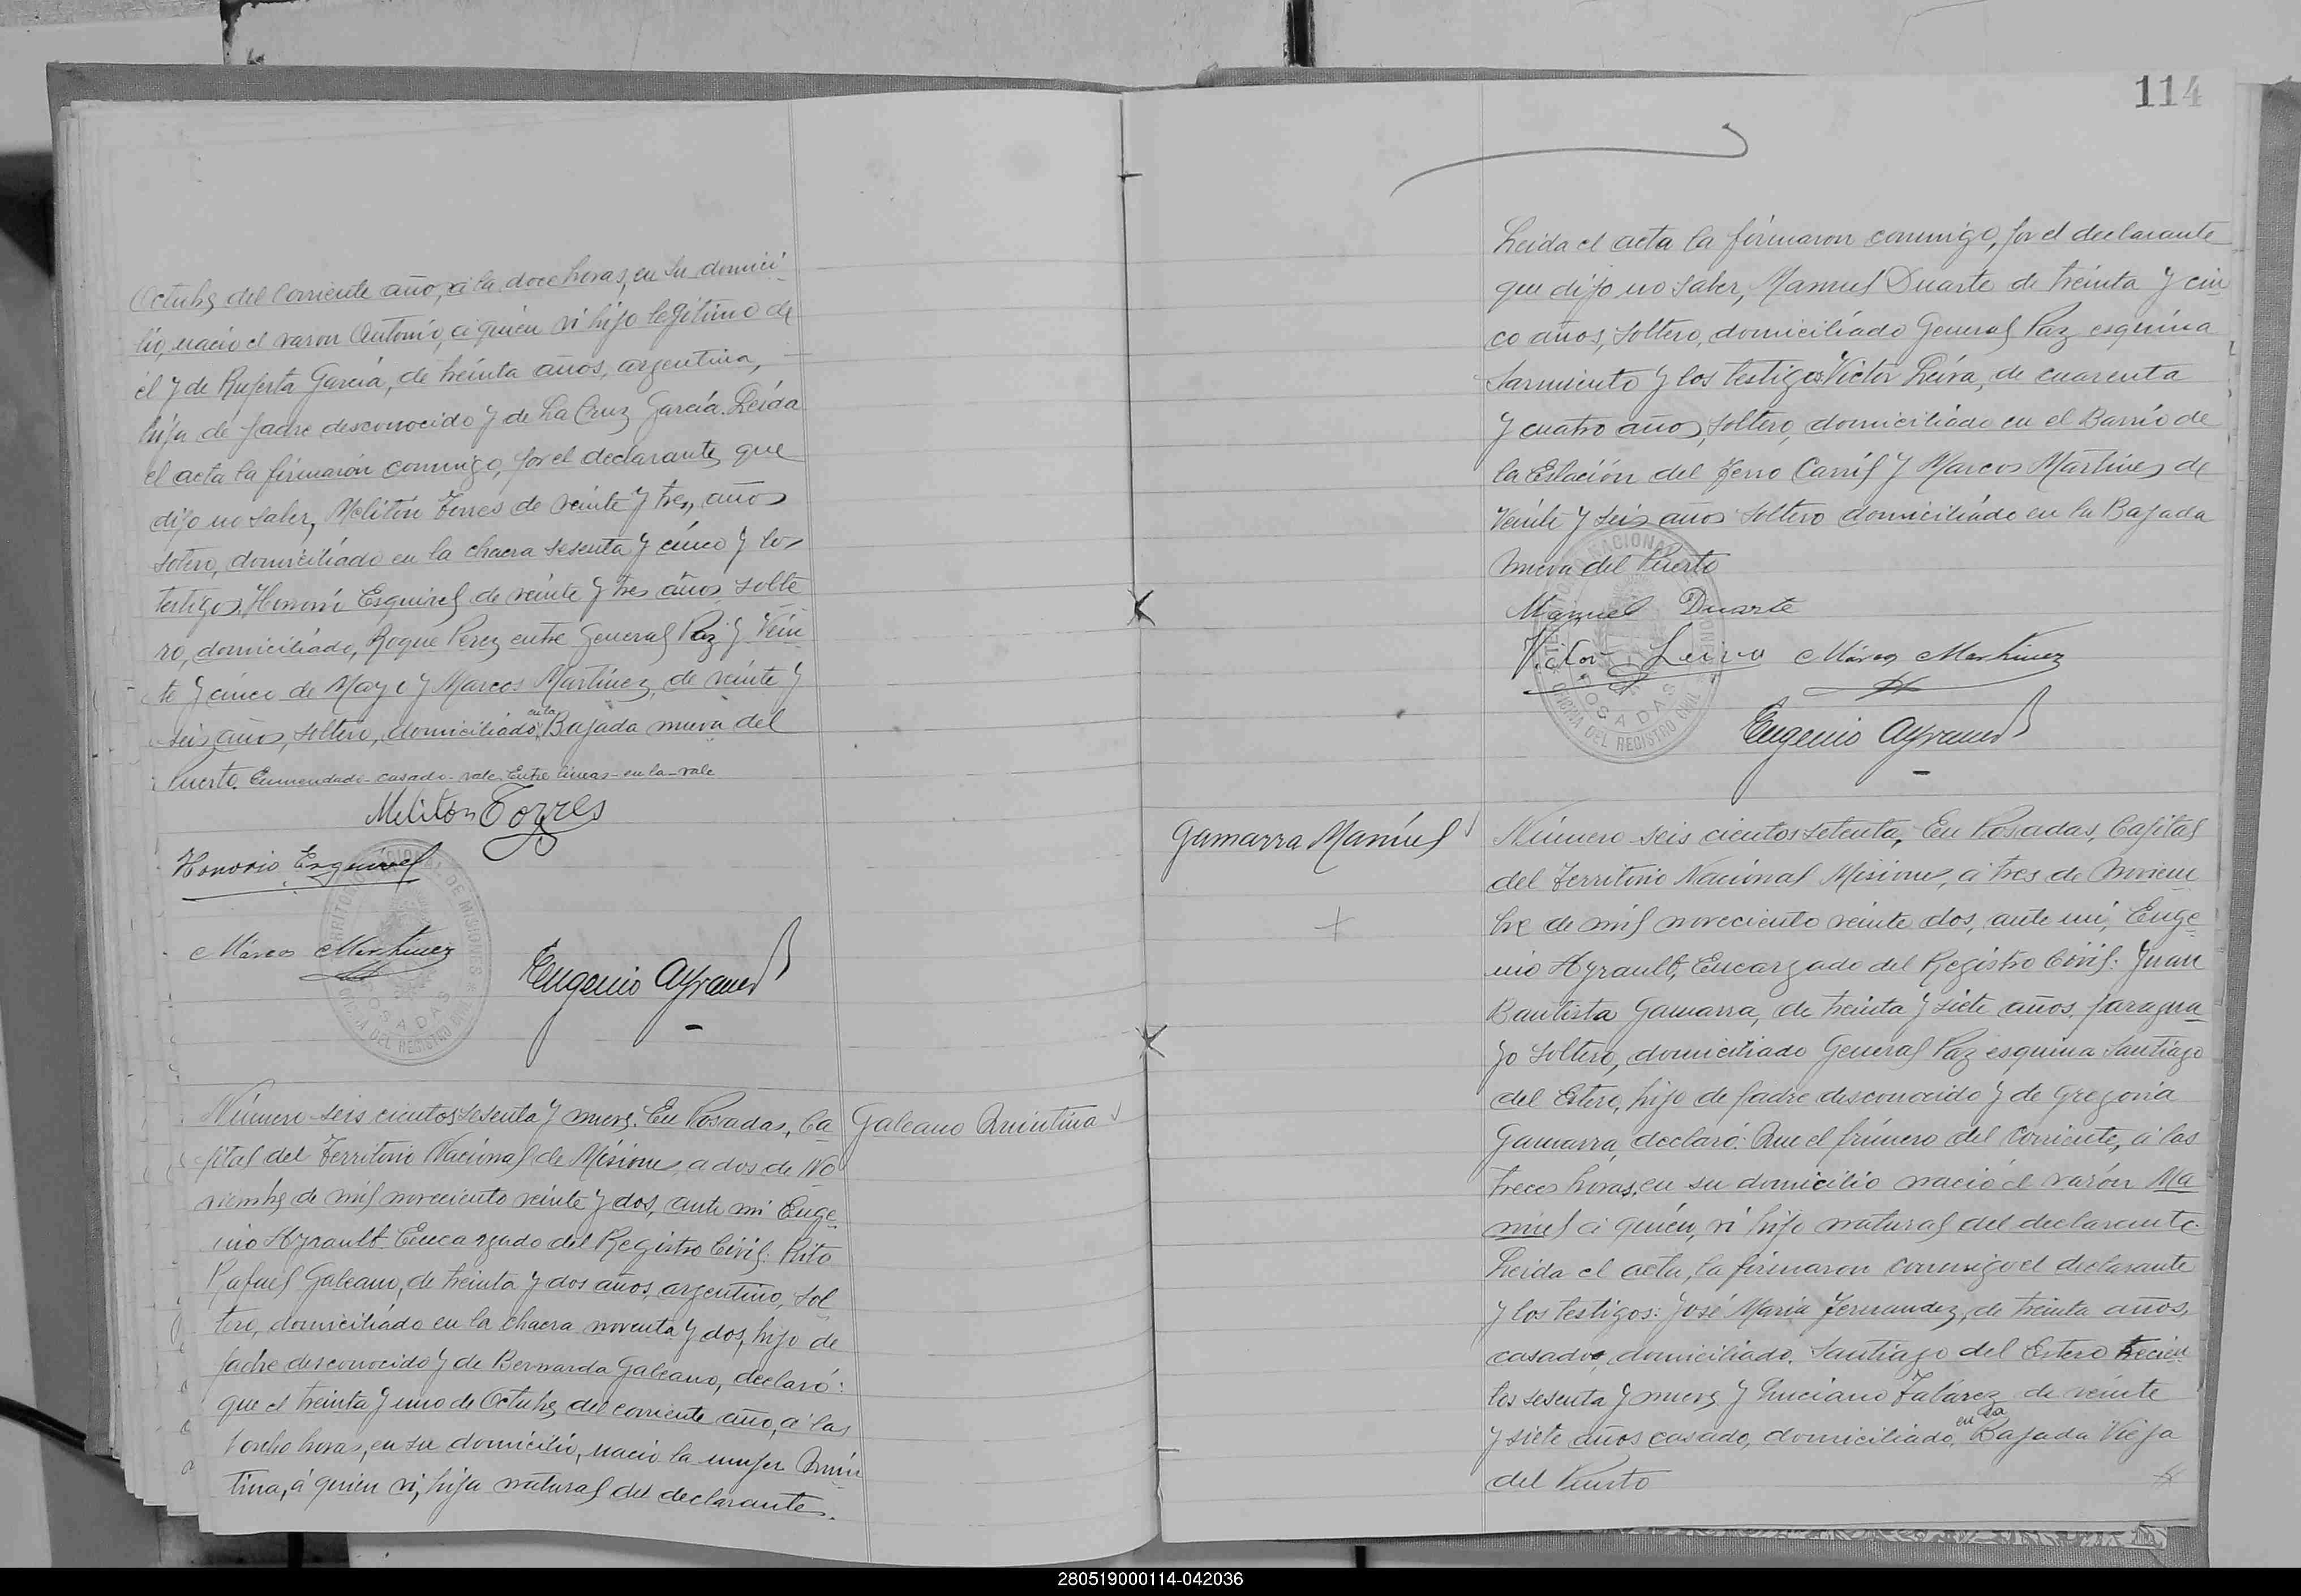 Octubre del corriente año, a la doce horas, en su domici-
lio, nació el varon Antonio, a quien ví hijo legítimo de
él y de Ruperta García, de treinta años, argentina,
hija de padre desconocido y de La Cruz García. Leída
el acta la firmaron conmigo, por el declarante que
dijo no saber, Melitón Torres de veinte y tres años
sotero, domiciliado en la chacra sesenta y cinco y los
testigos. Honorio Esquivel de veinte y tres años solte
ro, domiciliado, Roque Perez entre General Paz y Vein
te y cinco de Mayo y Marcos Martínez, de veinte y
seis años, soltero, domiciliado en la Bajada nueva del
Puerto. Enmendado-casado-vale. Entre líneas-en la-vale
Melitón Torres
Honorio Esquivel
Márcos Martinez
Eugenio Ayrault
TERRITORIO NACIONAL DE MISIONES
POSADAS
OFICINA DEL REGISTRO CIVIL
Número seis cientos sesenta y nueve. En Posadas, Ca
pital del Territorio Nacional de Misiones, a dos de No
viembre de mil novecientos veinte y dos, ante mi Euge
nio Ayrault Encargado del Registro Civil: Rito
Rafael Galeano, de treinta y dos años, argentino, sol
tero, domiciliado en la chacra noventa y dos, hijo de
padre desconocido y de Bernarda Galeano, declaró:
que el treinta y uno de Octubre del corriente año, a las
ocho horas, en su domicilio, nació la mujer Quin
tina, á quien ví, hija natural del declarante.
Galeano Quintina
114
Leida el acta la firmaron conmigo, por el declarante
que dijo no saber, Manuel Duarte de treinta y cin
co años, soltero, domiciliado General Paz esquina
Sarmiento y los testigos Víctor Leiva, de cuarenta
y cuatro años, soltero, domiciliado en el Barrio de
la Estación del Ferro Carril y Marcos Martines de
veinte y seis años soltero domiciliado en la Bajada
nueva del Puerto
Manuel Duarte
Victor Leiva Márcos Martinez
Eugenio Ayrault
POSADAS
OFICINA DEL REGISTRO CIVIL
Gamarra Manuel
Número seis cientos setenta, En Posadas, Capital
del Territorio Nacional Misiones, a tres de Noviem
bre de mil novecientos veinte dos, ante mi, Euge
nio Ayrault, Encargado del Registro Civil: Juan
Bautista Gamarra, de treinta y siete años, paragua
yo soltero, domiciliado General Paz esquina Santiago
del Estero, hijo de padre desconocido y de Gregoria
Gamarra, declaró: Que el primero del corriente, a las
trece horas, en su domicilio nació el varón Ma
nuel a quien, ví hijo natural del declarante.
Leida el acta, la firmaron conmigo el declarante
y los testigos: José María Fernandez, de treinta años,
casado, domiciliado. Santiago del Estero trecien
tos sesenta y nueve y Luciano Falárez de veinte
y siete años casado, domiciliado, en la Bajada Vieja
del Puerto
280519000114-042036